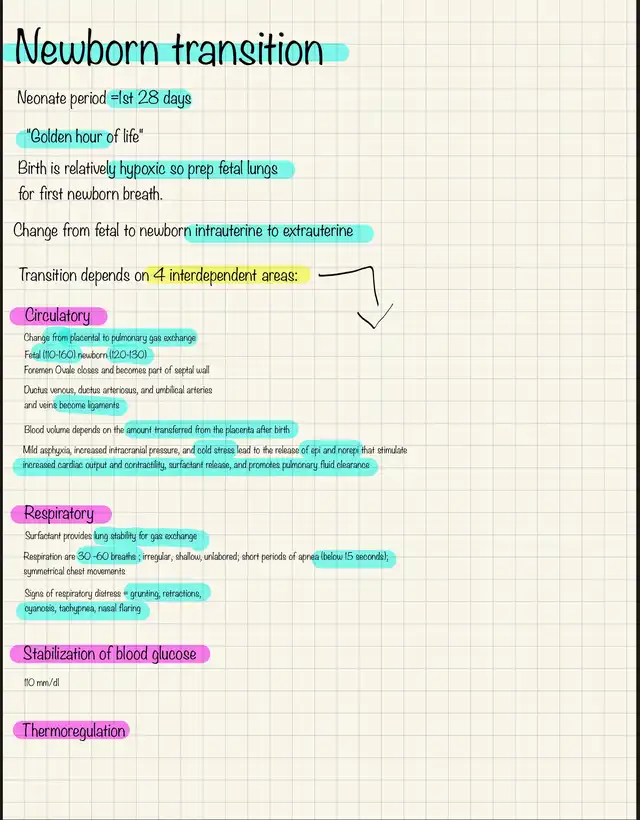 Newborn transition
Neonate period =1st 28 days
"Golden hour of life"
Birth is relatively hypoxic so prep fetal lungs
for first newborn breath.
Change from fetal to newborn intrauterine to extrauterine
Transition depends on 4 interdependent areas:
Circulatory
Change from placental to pulmonary gas exchange
Fetal (110-160) newborn (120-130)
Foremen Ovale closes and becomes part of septal wall
Ductus venous, ductus arteriosus, and umbilical arteries
and veins become ligaments
Blood volume depends on the amount transferred from the placenta after birth
Mild asphyxia, increased intracranial pressure, and cold stress lead to the release of epi and norepi that stimulate
increased cardiac output and contractility, surfactant release, and promotes pulmonary fluid clearance
Respiratory
Surfactant provides lung stability for gas exchange
Respiration are 30 -60 breaths ; irregular, shallow, unlabored; short periods of apnea (below 15 seconds);
symmetrical chest movements
Signs of respiratory distress = grunting, retractions,
cyanosis, tachypnea, nasal flaring
Stabilization of blood glucose
110 mm/dl
Thermoregulation